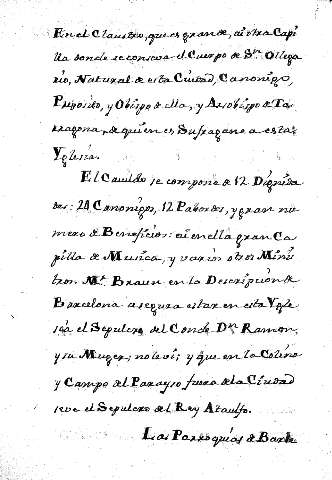 En el Claustro, que es grande, ai otra Capi
lla donde se conserva el Cuerpo de Sn. Ollega
rio, Natural de esta Ciudad, Canonigo,
Preposito, y Obispo de ella, y Arzobispo de Ta
rragona, de quien es Sufragano a esta
Yglesia.
El Cavildo se compone de 12 Dignida
des: 24 Canonigos, 12 Pabordes, y gran nu
mero de Beneficios: ai en ella gran Ca
pilla de Musica, y varios otros Minis
tros. Mr. Braun en la Descripcion de
Barcelona asegura estar en esta Ygle
sia el Sepulcro del Conde Dn. Ramon,
y su Muger; no le vi; y que en la Colina
y Campo del Parayso fuera de la Ciudad
se ve el Sepulcro del Rey Ataulfo.
Las Parroquias de Barce